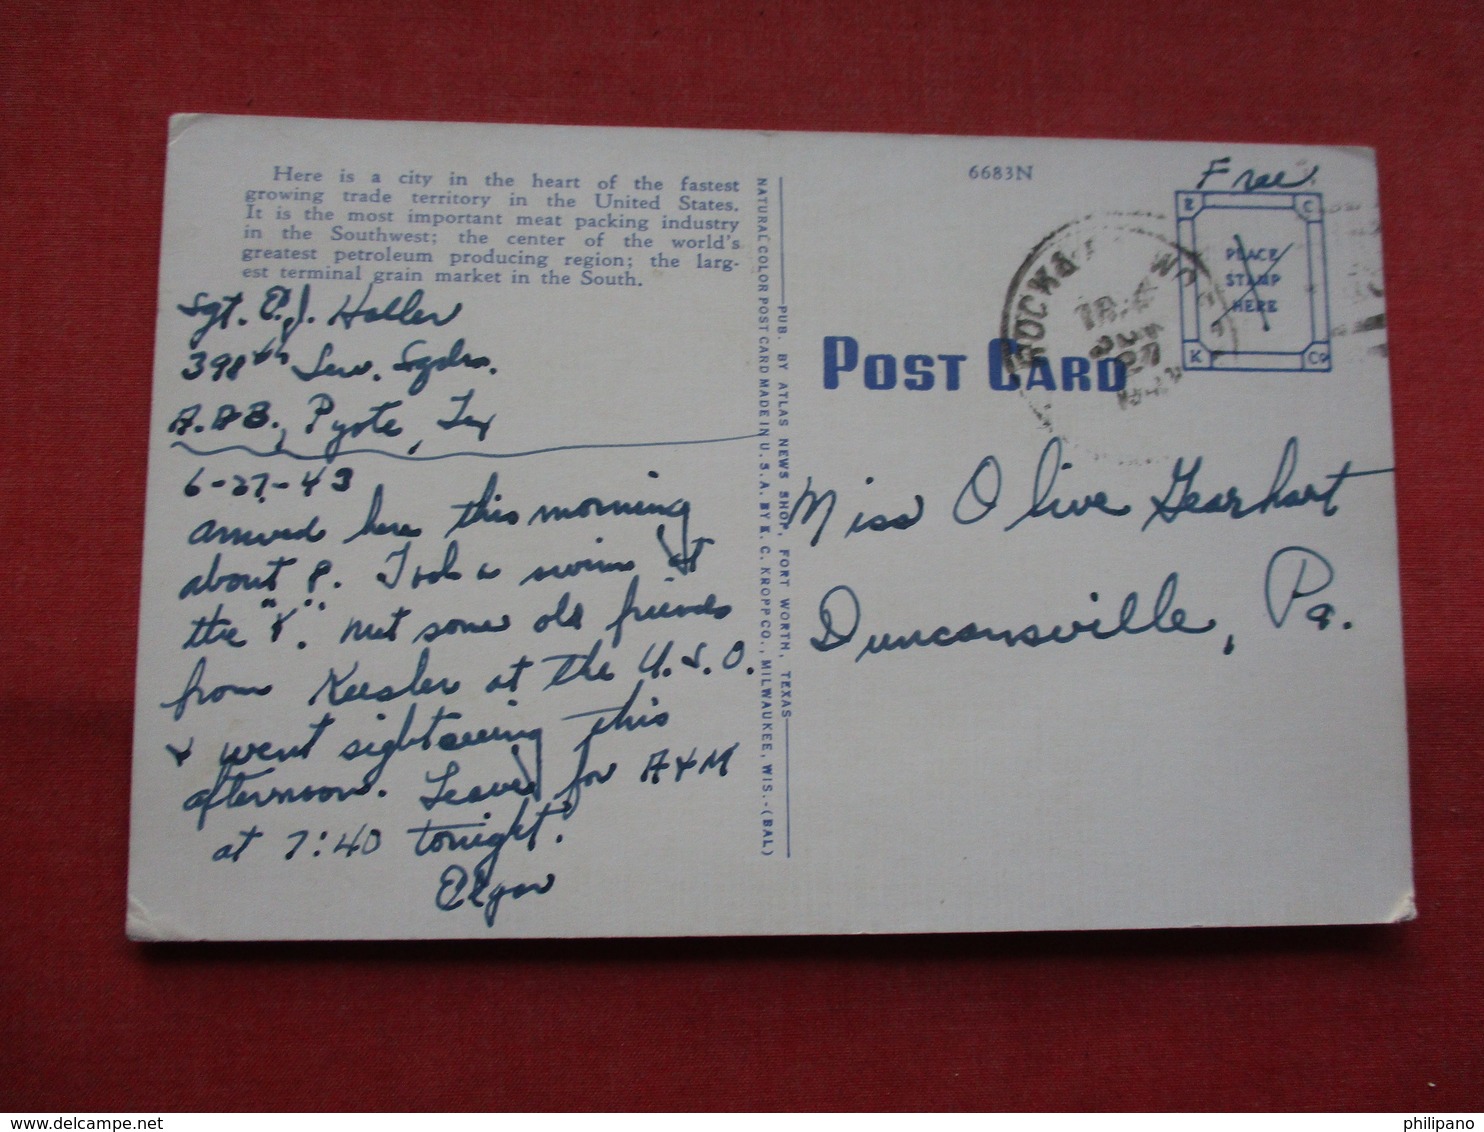 Here is a city in the heart of the fastest
growing trade territory in the United States.
It is the most important meat packing industry
in the Southwest; the center of the world's
greatest petroleum producing region; the larg-
est terminal grain market in the South.
Sgt. E.J. Haller
398th Serv. Sqdrn.
A.A.B., Pyote, Tex
6-27-43
arrived here this morning
about 8. Took a swim at
the "Y". Met some old friends
from Keesler at the U.S.O.
& went sightseeing this
afternoon. Leave for A&M
at 7:40 tonight.
Elgar
NATURAL COLOR POST CARD MADE IN U.S.A. BY E. C. KROPP CO., MILWAUKEE, WIS.-(BAL)
PUB. BY ATLAS NEWS SHOP, FORT WORTH, TEXAS
6683N
Free
E C
PLACE
STAMP
HERE
K Co
POST CARD
Miss Olive Gearhart
Duncansville, Pa.
philipano